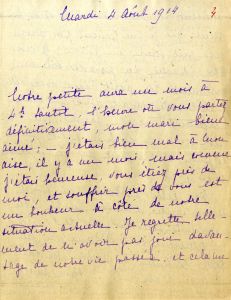 Mardi 4 Août 1914
Notre petite aura un mois à
4h tantôt, l'heure où vous partez
définitivement, mon mari bien
aimé ; — j'étais bien mal à mon
aise, il y a un mois, mais comme
j'étais heureuse, vous étiez près de
moi, et souffrir près de vous est
un bonheur à côté de notre
situation actuelle. Je regrette telle-
ment de n'avoir pas joui davan-
tage de notre vie passée, et cela me